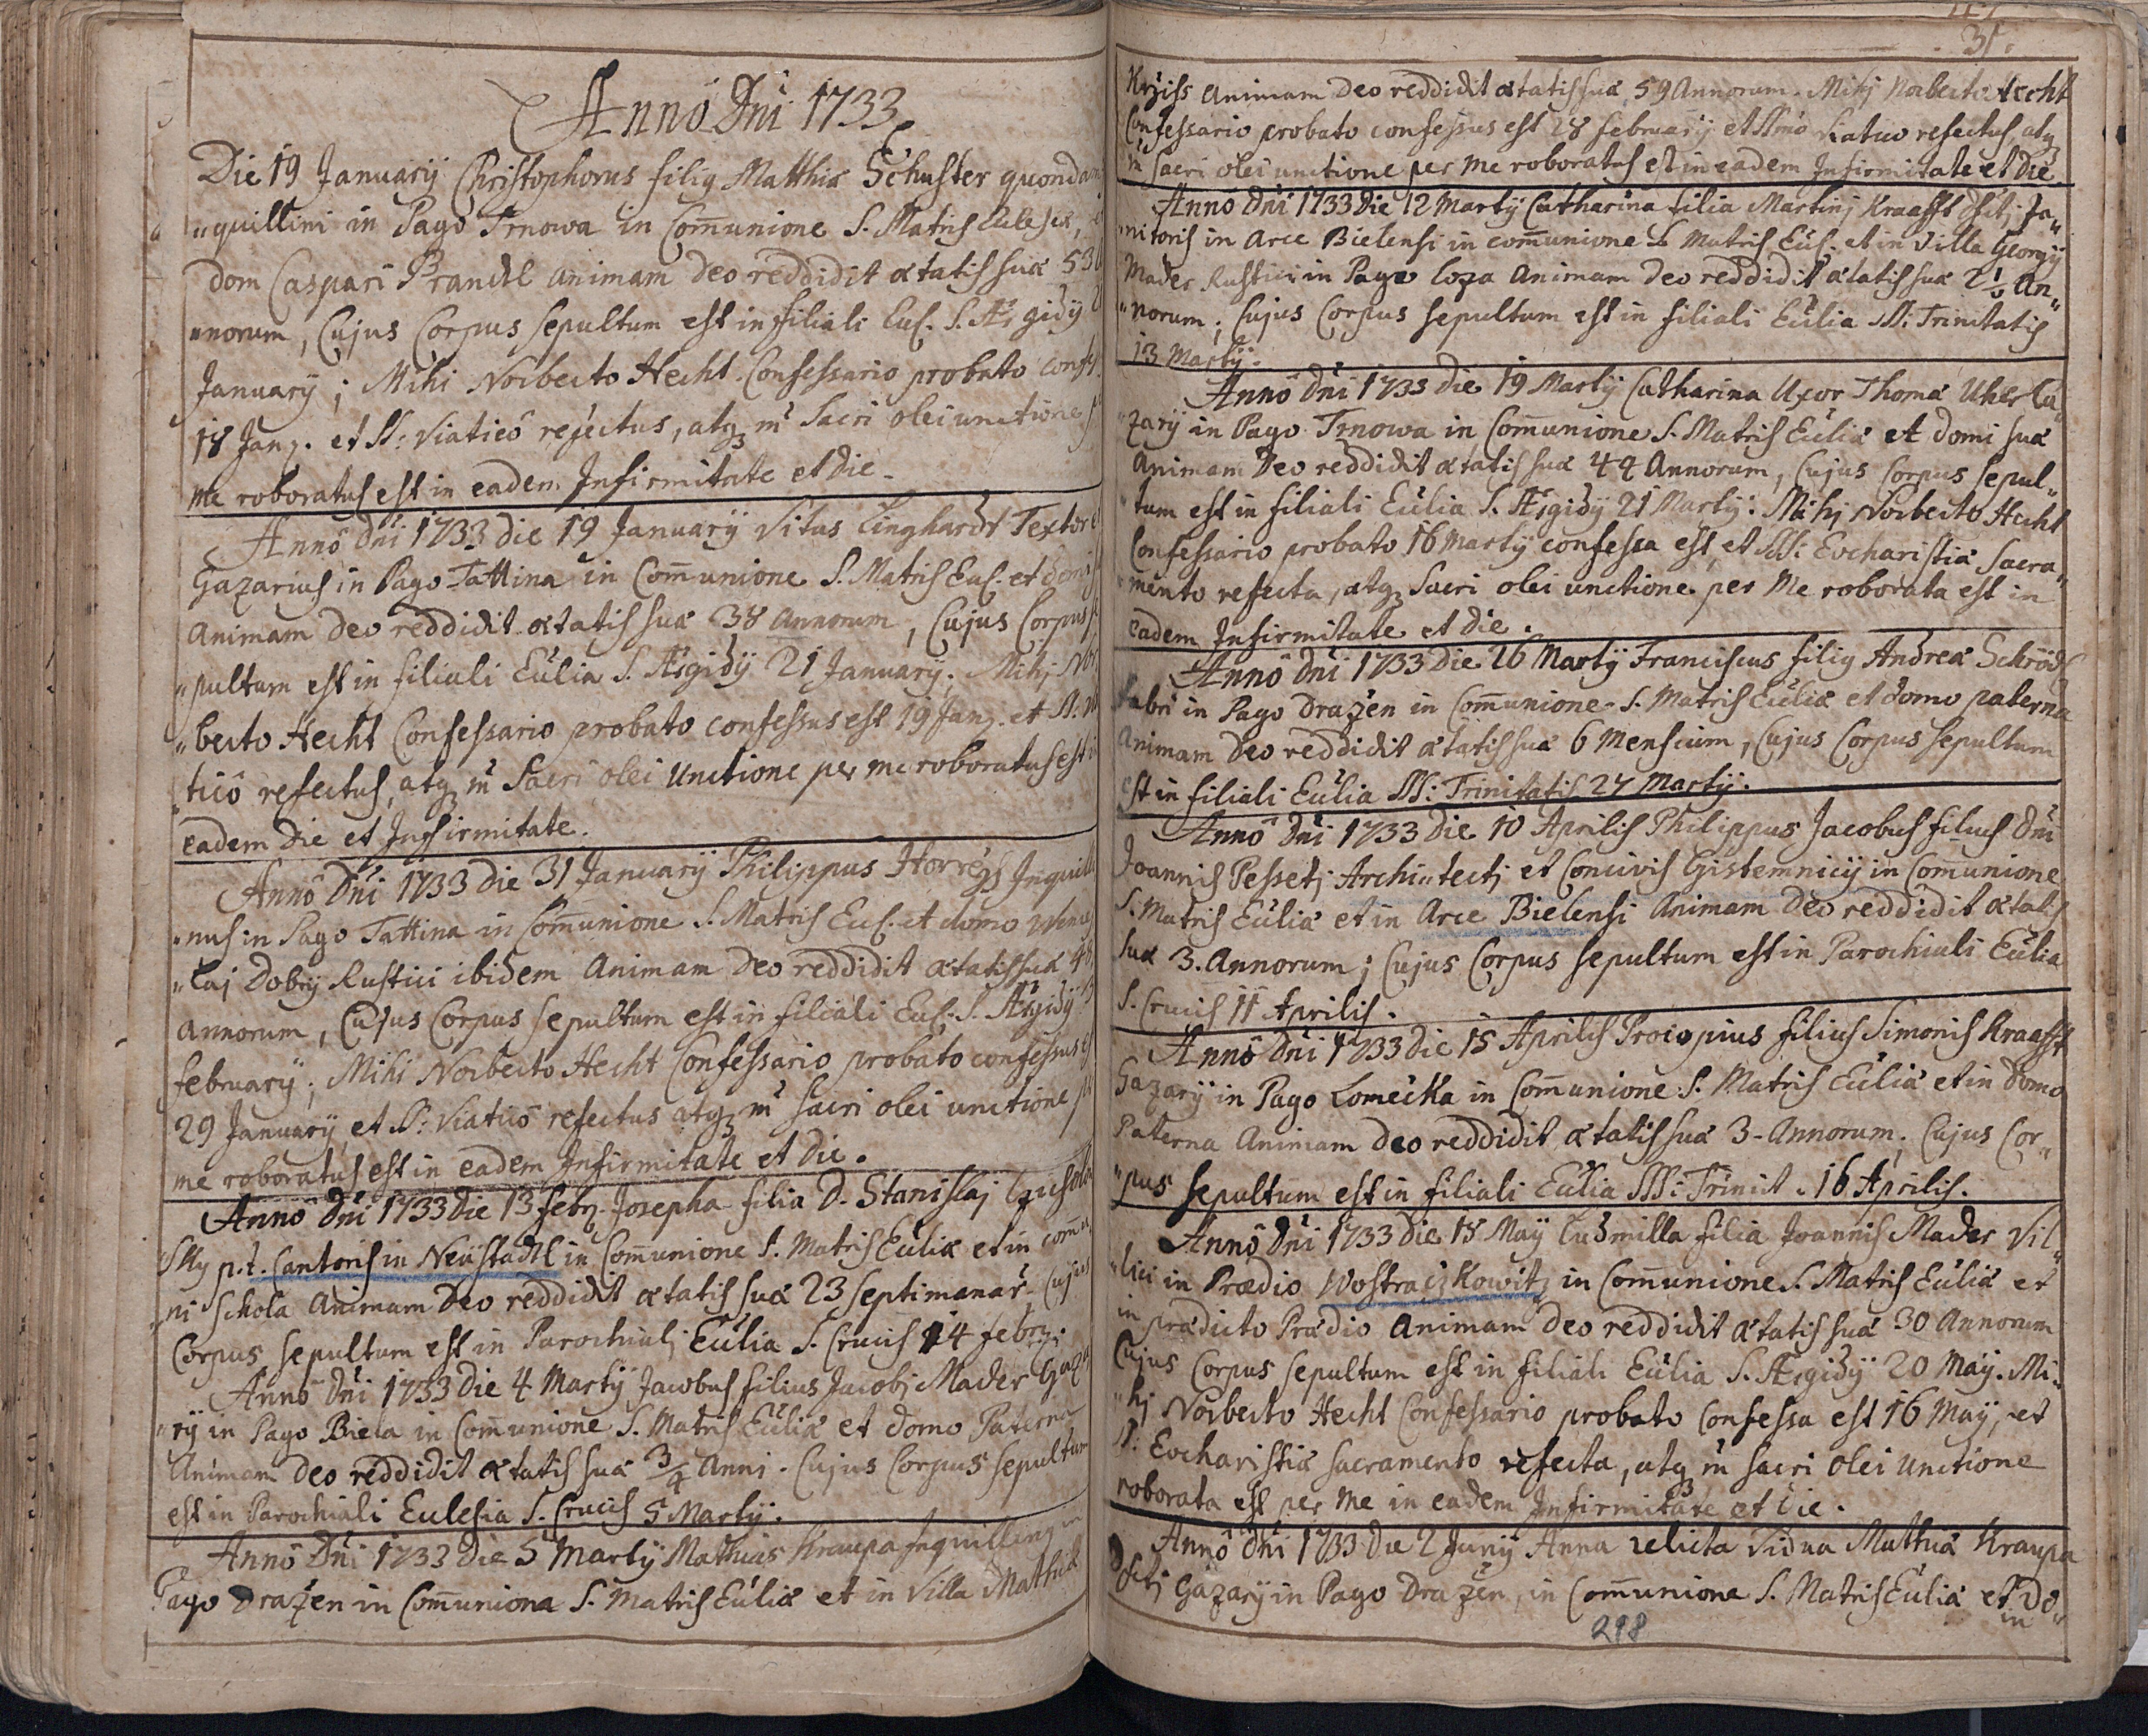 Annô Dni 1733
Die 19 Januarÿ Christophorus filiq Matthiæ Schuster quondam
"quillini in Pago Trnowa in Com̄unione S. Matris Eclesiæ,
dom Caspari Prandl animam deo reddidit ætatis suæ 53
"norum, Cujus Corpus sepultum est in filiali Eul. S. Ægidÿ
Januarÿ; Mihi Norberto Hecht Confessario probato confes
18 Janr. et SS: Viaticô refectus, atq m̃ Sacri olei unctione
me roboratus est in eadem Infirmitate et die.
Annô Dni 1733 die 19 Januarÿ Vitus Linghardt Textor
Gazarius in Pago Tattina in Com̄unione S. Matris Eul. et domi
Animam deo reddidit ætatis suæ 38 Annorum, Cujus Corpus
"pultum est in filiali Eúlia S. Ægidÿ 21 Januarÿ; Mihj Nor
"berto Hecht Confessario probato confessus est 19 Janr. et SS.
"ticô refectus, atq m̃ Sacri olei Unctione per me roboratus est
eadem Die et Infirmitate.
Annô Dni 1733 die 31 Januarÿ Philippus Inquili
"nus in Pago Tattina in Com̄unione S. Matris Eul. et domo Wences
"laj Dobrÿ Rustici ibidem Animam deo reddidit ætatis suæ
annorum, Cujus Corpus sepultum est in filiali Eul. S. Ægidÿ
februarÿ; Mihi Norberto Hecht Confessario probato confessus
29 Januarÿ et SS: Viaticô refectus atq m̃ Sacri olei unctione
me roboratus est in eadem Infirmitate et die.
Annô Dni 1733 Die 13 febr. Josepha filia D. Stanislaj
p.t. Cantoris in Neüstadtl in Com̄unione S. Matris Eúliæ et in com̄u
"ni Schola Animam Deo reddidit ætatis suæ 23 Septimanar. Cujus
Corpus sepultum est in Parochialj Eúlia S. Crucis 14 febr.
Annô Dni 1733 Die 4 Martÿ Jacobus filius Jacobj Mader Gaza
"rÿ in Pago Biela in Com̄unione S. Matris Eúliæ et domo Paterna
Animam deo reddidit ætatis suæ 3/4 Anni. Cujus Corpus sepultum
est in Parochiali Eulesia S. Crucis 5 Martÿ.
Annô Dni 1733 Die 5 Martÿ Mathias Kraupa Inquilinq in
Pago Drazen in Com̄uniona S. Matris Eúliæ et in Villa Mathiæ
31
animam deo reddidit ætatis suæ, 59 Annorum. Mihj Norberto Hecht
Confessario probato confessus est 28 februarÿ et refectus atq
m̃ Sacri olei unctione per me roboratus est in eadem Infirmitate et Die.
Annô Dni 1733 Die 12 Martÿ Catharina filia Martinj Kraafft Ja"
"nitoris in Arce Bielensi in com̄unione S. Matris Eul. et in Villa Georgÿ
Mader Rustici in Pago Loza Animam deo reddidit ætatis suæ An"
"norum; Cujus Corpus sepultum est in filiali Eúlia SS: Trinitatis
13 Martÿ.
Annô Dni 1733 Die 19 Martÿ Catharina Uxor Thomæ Uher Ga"
"zarÿ in Pago Trnowa in Com̄unione S. Matris Eúliæ et domi suæ
Animam Deo reddidit ætatis suæ 44 Annorum, Cujus Corpus sepul"
"tum est in filiali Eúlia S. Ægidÿ 21 Martÿ: Mihj Norberto Hecht
Confessario probato 16 Martÿ confessa est, et SS: Evcharistiæ Sacra"
"mento refecta, atq Sacri olei unctione per Me roborata est in
eadem Infirmitate et Die.
Annô Dni 1733 Die 26 Martÿ Franciscus filiq Andreæ
fabri in Pago Drazen in Com̄unione S. Matris Eúliæ et domo paterna
Animam Deo reddidit ætatis suæ 6 Mensium, Cujus Corpus Sepultum
est in filiali Eúlia SS: Trinitatis 27 Martÿ.
Annô Dni 1733 Die 10 Aprilis Philippus Jacobus filius Dni
Joannis Pessetj Archi"tectj et Concivis in Com̄unione
S. Matris Eúliæ et in Arce Bielensi Animam Deo reddidit ætatis
suæ 3. Annorum; Cujus Corpus sepultum est in Parochiali Eúlia
S. Crucis 11 Aprilis.
Annô Dni 1733 Die 15 Aprilis Procopius filius Simonis Kraafft
Gazarÿ in Pago Lomečka in Com̄unione S. Matris Eúliæ et in domo
Paterna Animam deo reddidit ætatis suæ 3-Annorum; Cujus Cor"
"pus sepultum est in filiali Eúlia SS: Trinit. 16 Aprilis.
Annô Dni 1733 Die 18 Maÿ Ludmilla filia Joannis Mader Vil"
"lici in Prædio Wostraczkowitz in Com̄unione S. Matris Eúliæ et
in prædicto Prædio Animam deo reddidit ætatis suæ 30 Annorum
Cujus Corpus sepultum est in filiali Eúlia S. Ægidÿ 20 Maÿ. Mi"
"hj Norberto Hecht Confessario probato Confessa est 16 Maÿ, et
SS. Evcharistiæ Sacramento refecta, atq m̃ sacri olei Unctione
roborata est per me in eadem Infirmitate et Die.
Annô Dni 1733 Die 2 Junÿ Anna relicta Vidua Mathiæ Kraupa
Gazarÿ in Pago Drazen, in Com̄unione S. Matris Eúliæ et Do"
in
298